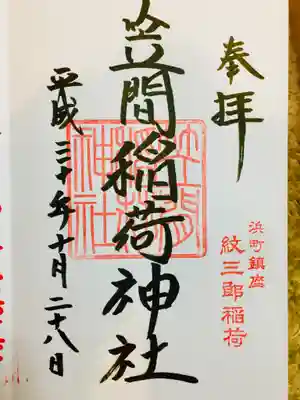 奉拝
浜町鎮座
紋三郎稲荷
笠間稲荷神社
笠間稲荷神社
平成三十年十月二十八日